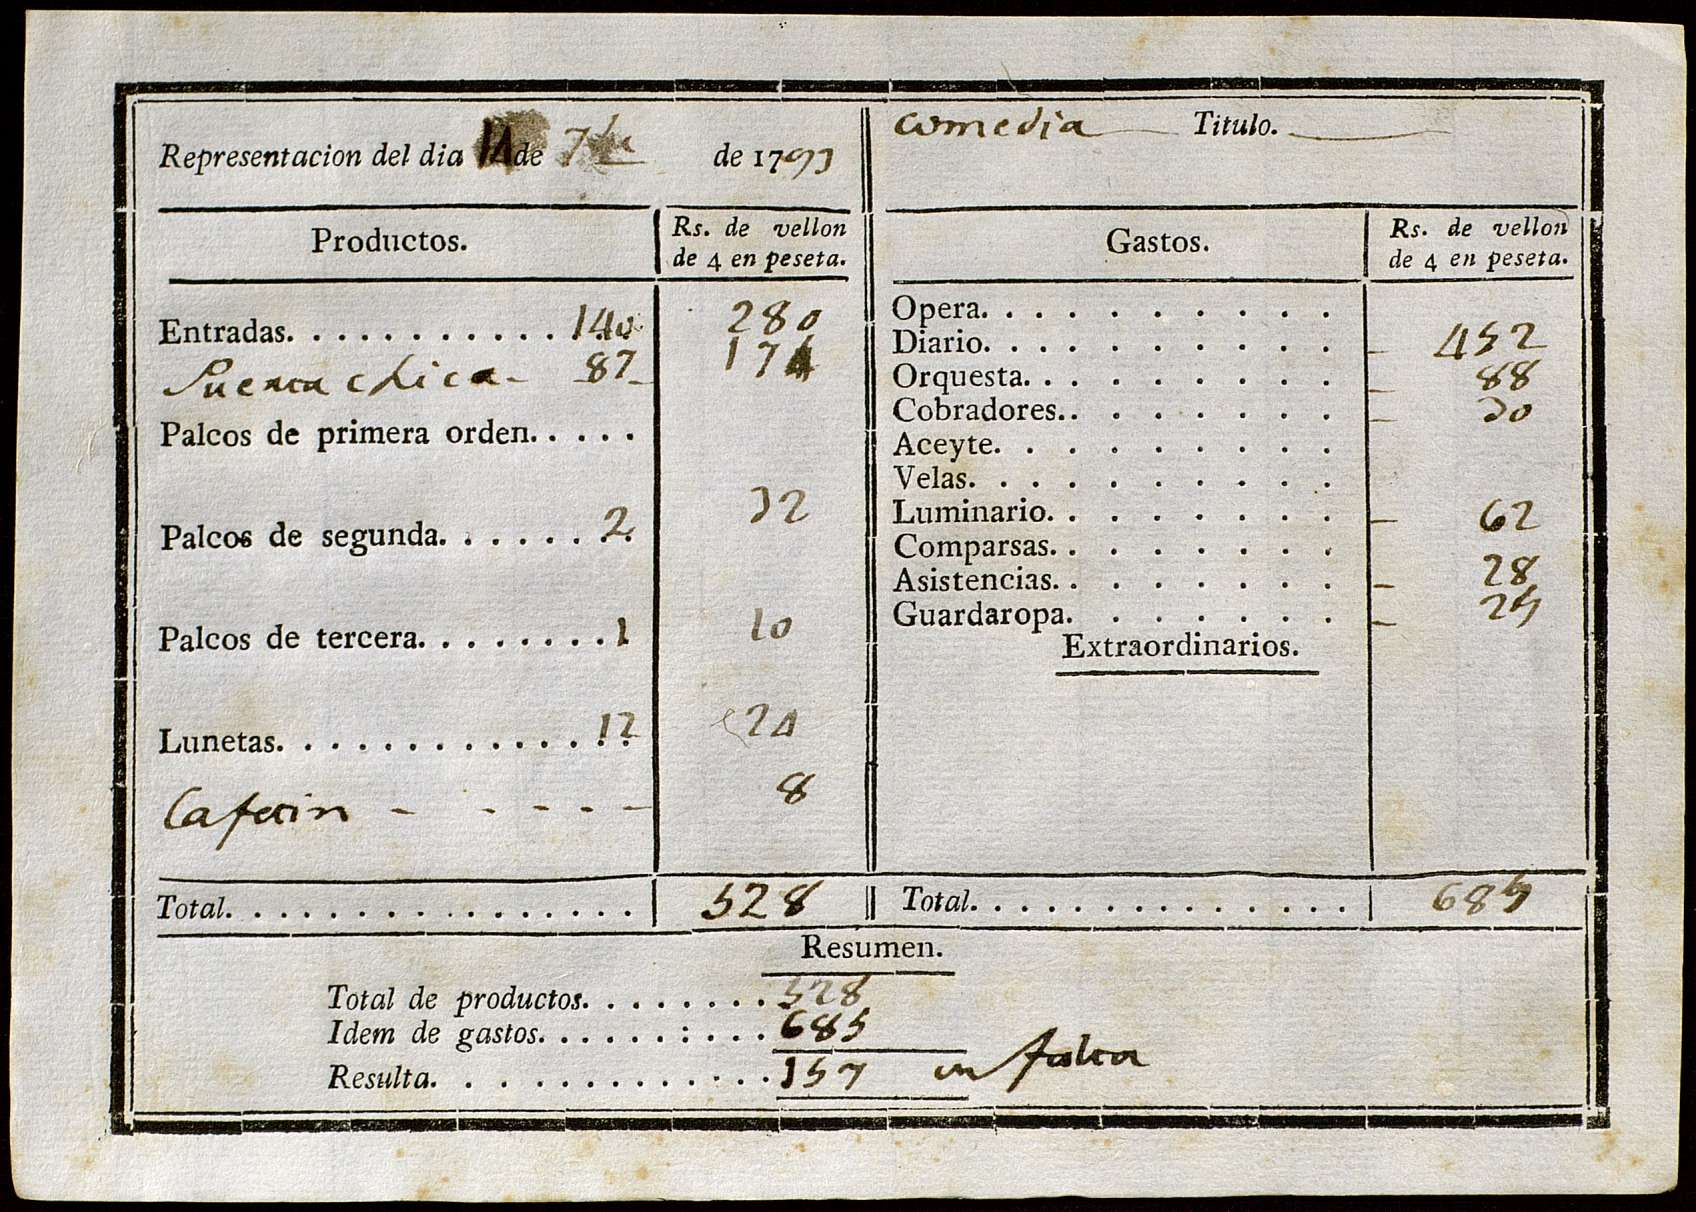 Representacion del dia 14 de 7bre de 1793
comedia Titulo.
Productos. Rs. de vellon
de 4 en peseta.
Entradas. . . . . . . . . . . 140 280
Puerta chica - 87 174
Palcos de primera orden. . . . .
Palcos de segunda. . . . . . . 2 32
Palcos de tercera. . . . . . . . 1 10
Lunetas. . . . . . . . . . . . . 12 24
Cafetin - - - - - 8
Total. . . . . . . . . . . . . . . . 528
Gastos. Rs. de vellon
de 4 en peseta.
Opera. . . . . . . . . .
Diario. . . . . . . . . . 452
Orquesta. . . . . . . . . 88
Cobradores. . . . . . . . 30
Aceyte. . . . . . . . . .
Velas. . . . . . . . . .
Luminario. . . . . . . . 62
Comparsas. . . . . . . .
Asistencias. . . . . . . . 28
Guardaropa. . . . . . . 25
Extraordinarios.
Total. . . . . . . . . . . . . . 685
Resumen.
Total de productos. . . . . . . . 528
Idem de gastos. . . . . . : . . . 685
Resulta. . . . . . . . . . . . . 157 en falta